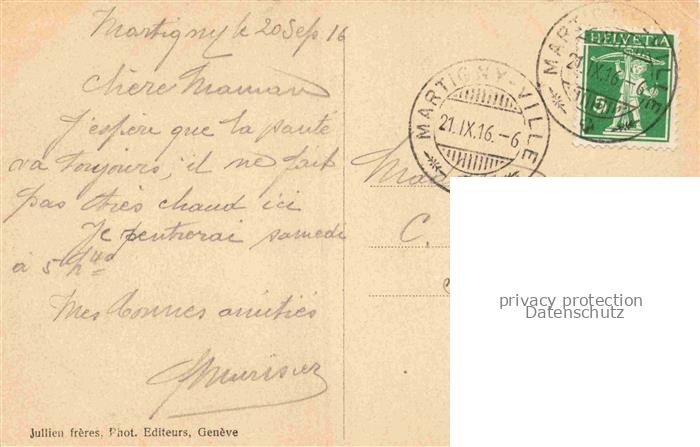 Martigny le 20 Sep 16
chère Maman
J'espère que la santé
va toujours, il ne fait
pas très chaud ici
Je rentrerai samedi
à 5 h 40
Mes bonnes amitiés
MARTIGNY-VILLE
21.IX.16.-6
MARTIGNY-VILLE
21.IX.16.-6
HELVETIA
5
C.
privacy protection
Datenschutz
Jullien frères, Phot. Editeurs, Genève